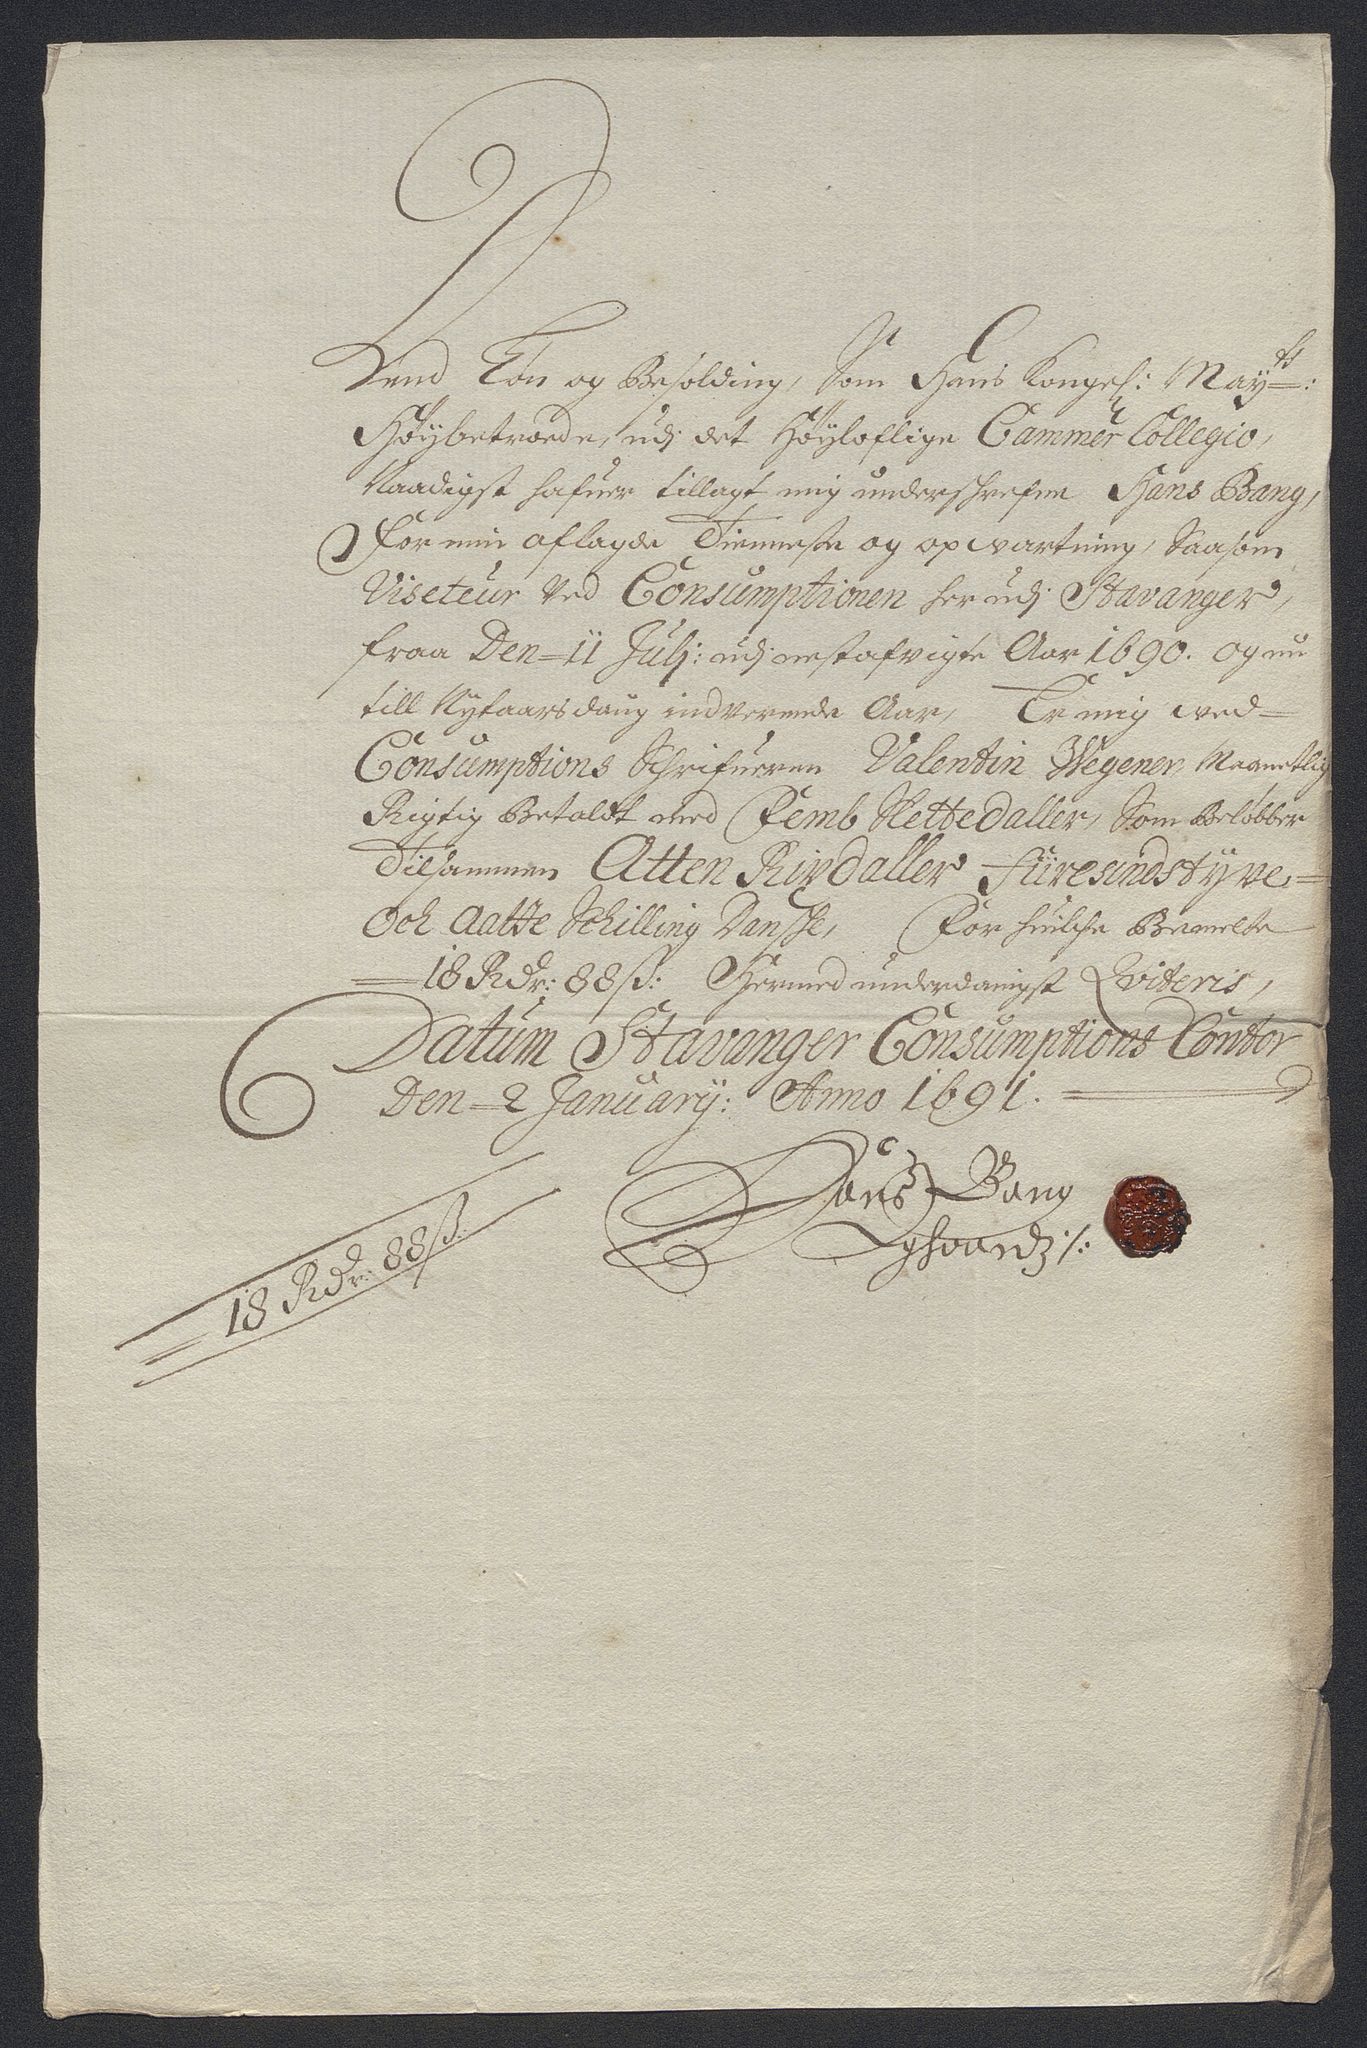 Dend Løn og Besolding, Som Hans Kongel: May:ts
Høybetroede, udj det Høyloflige Cammer Collegio,
Naadigst hafuer tillagt mig underschrefne Hans Bang,
For min aflagde Tienneste og opvartning, Saasom
Viseteur ved Consumptionen her udj Stavanger,
fraa Den 11 Julj: udj nestafvigte Aar 1690. og nu
till Nytaarsdaug indverende Aar, Er mig ved
Consumptions Schrifueren Valentin Wegener, Maanetlig
Rigtig Betaldt med Femb Slettedaller, Som Beløbber
Tilsammen Atten Rixdaller Fiiresindstyve
Och Aatte Schilling Danske, For huilche Bemelte
18 Rdr: 88 ß: Hermed underdanigst Qviteris,
Datum Stavanger Consumptions Contor
Den 2 January: Anno 1691.
Hans Bang
Eghaandz /:
18 Rdr: 88 ß: